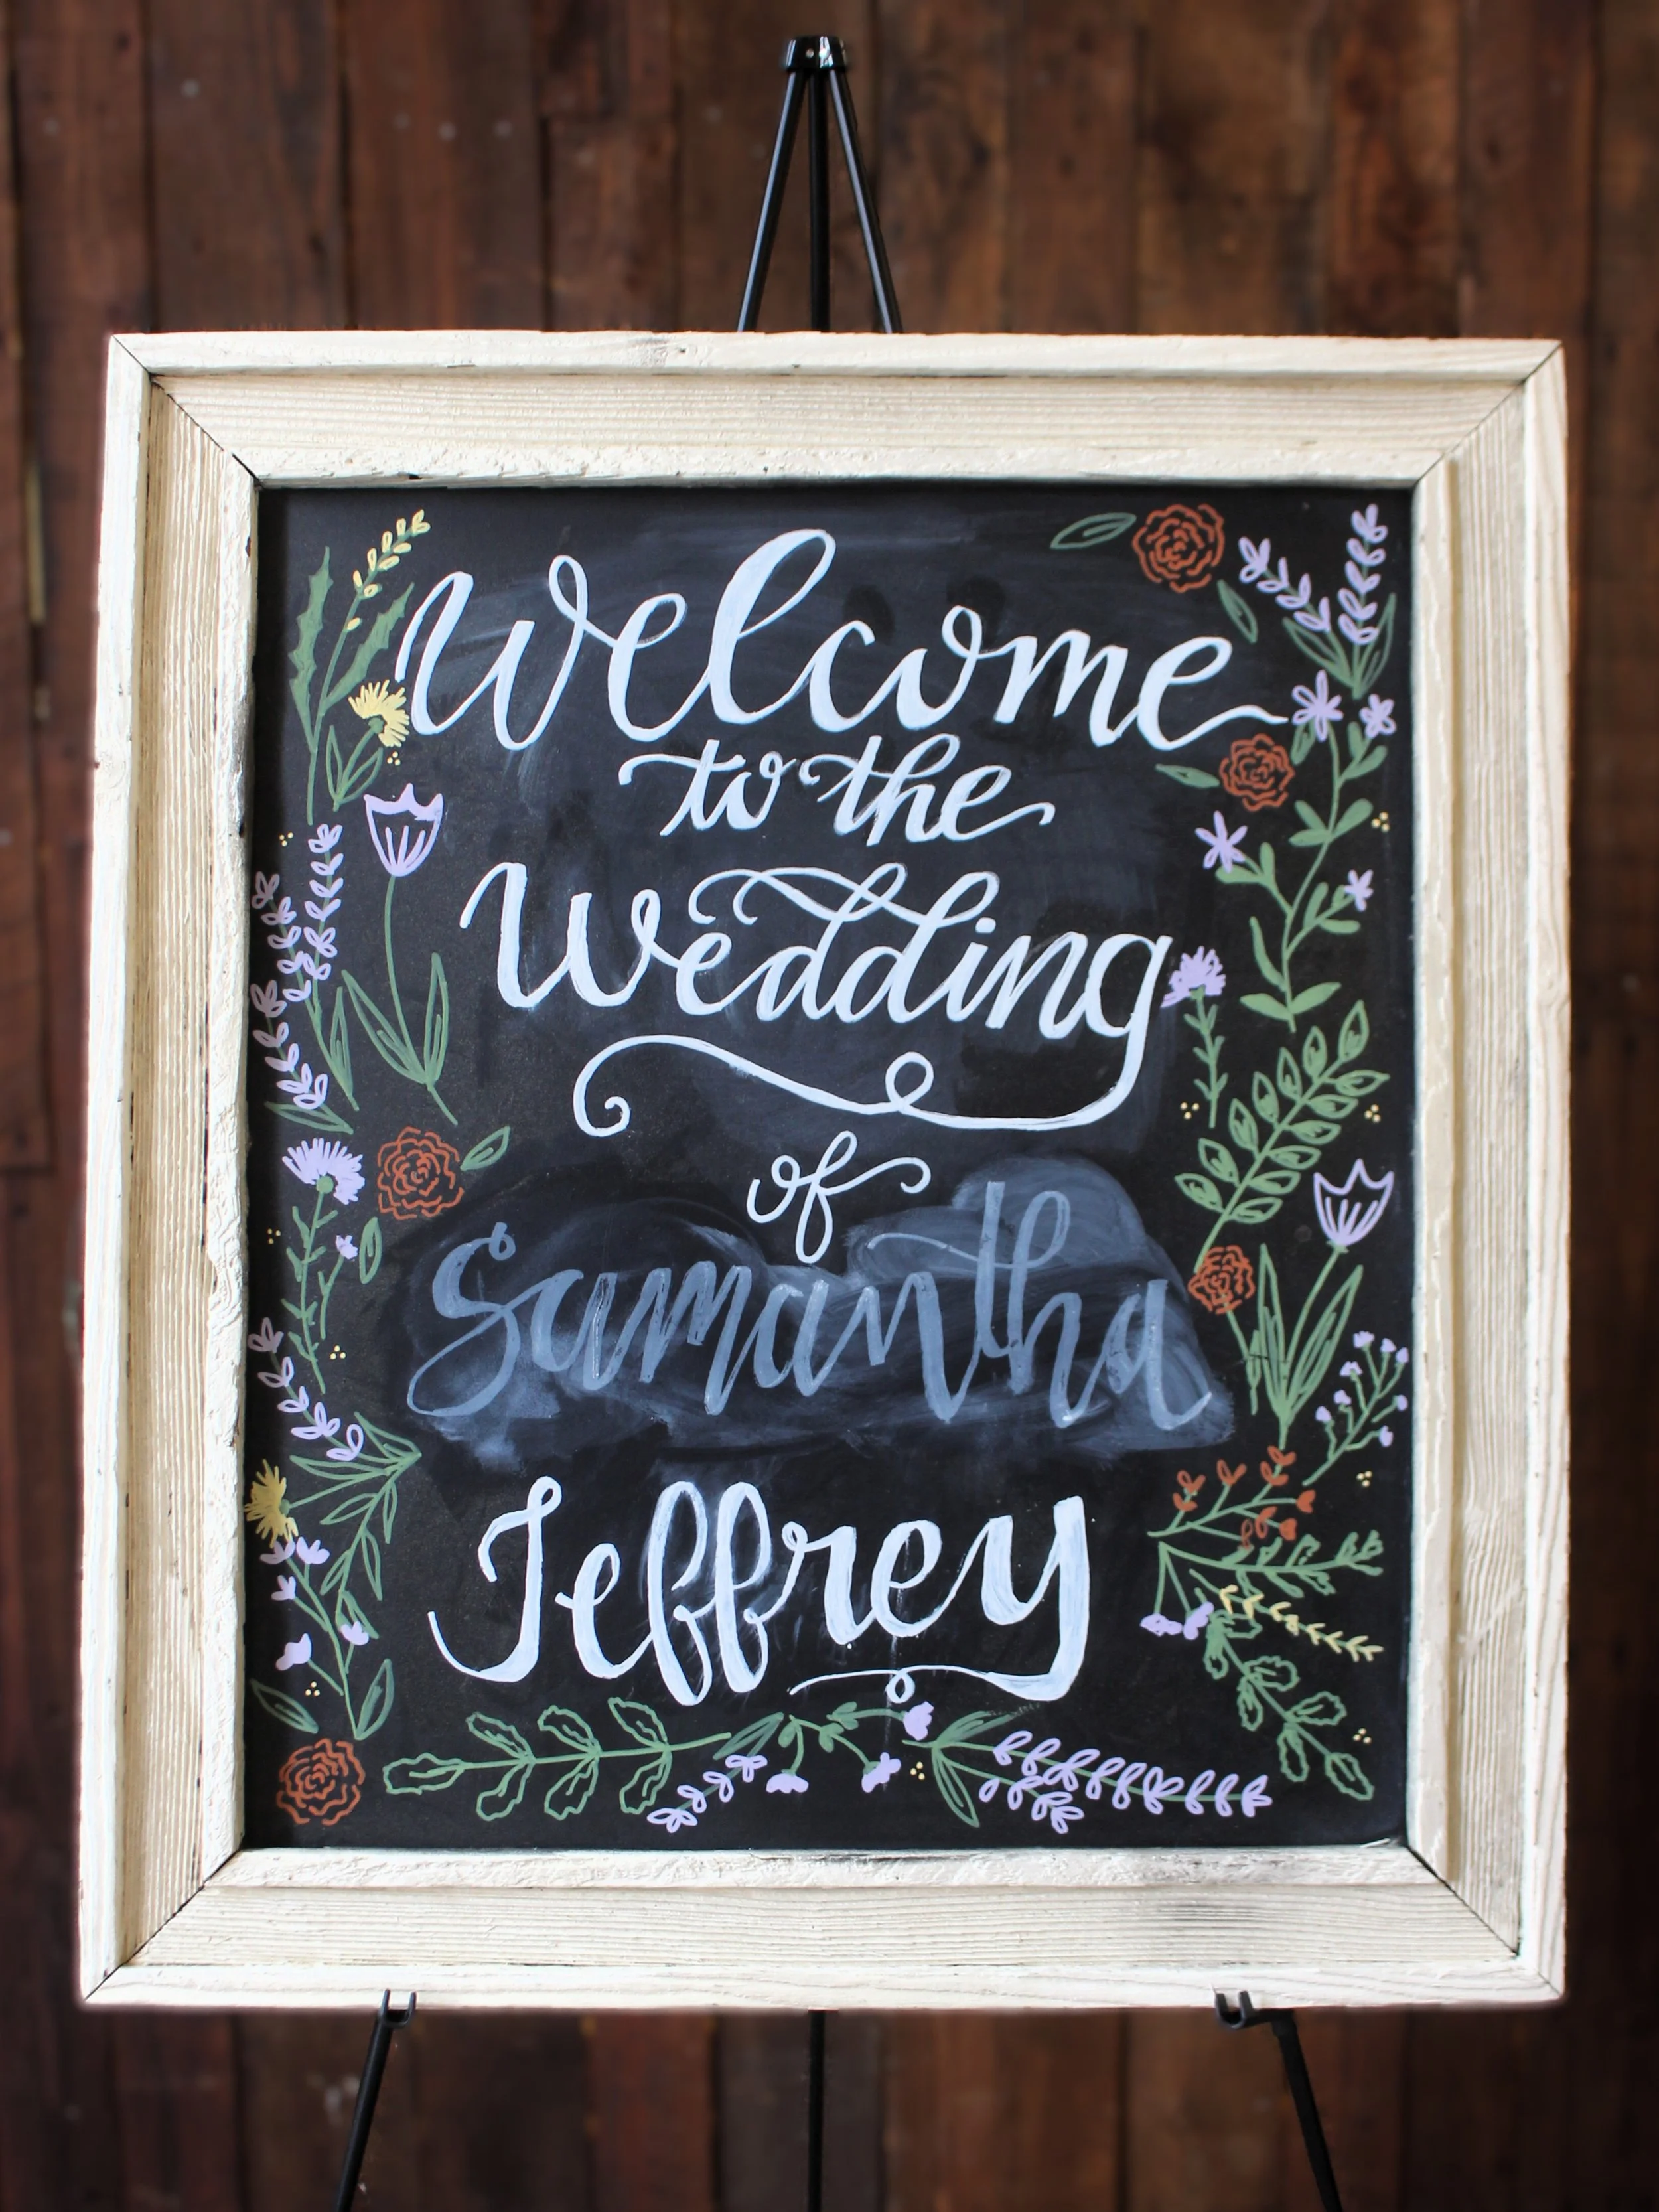 Welcome
to the
Wedding
of
Samantha
Jeffrey